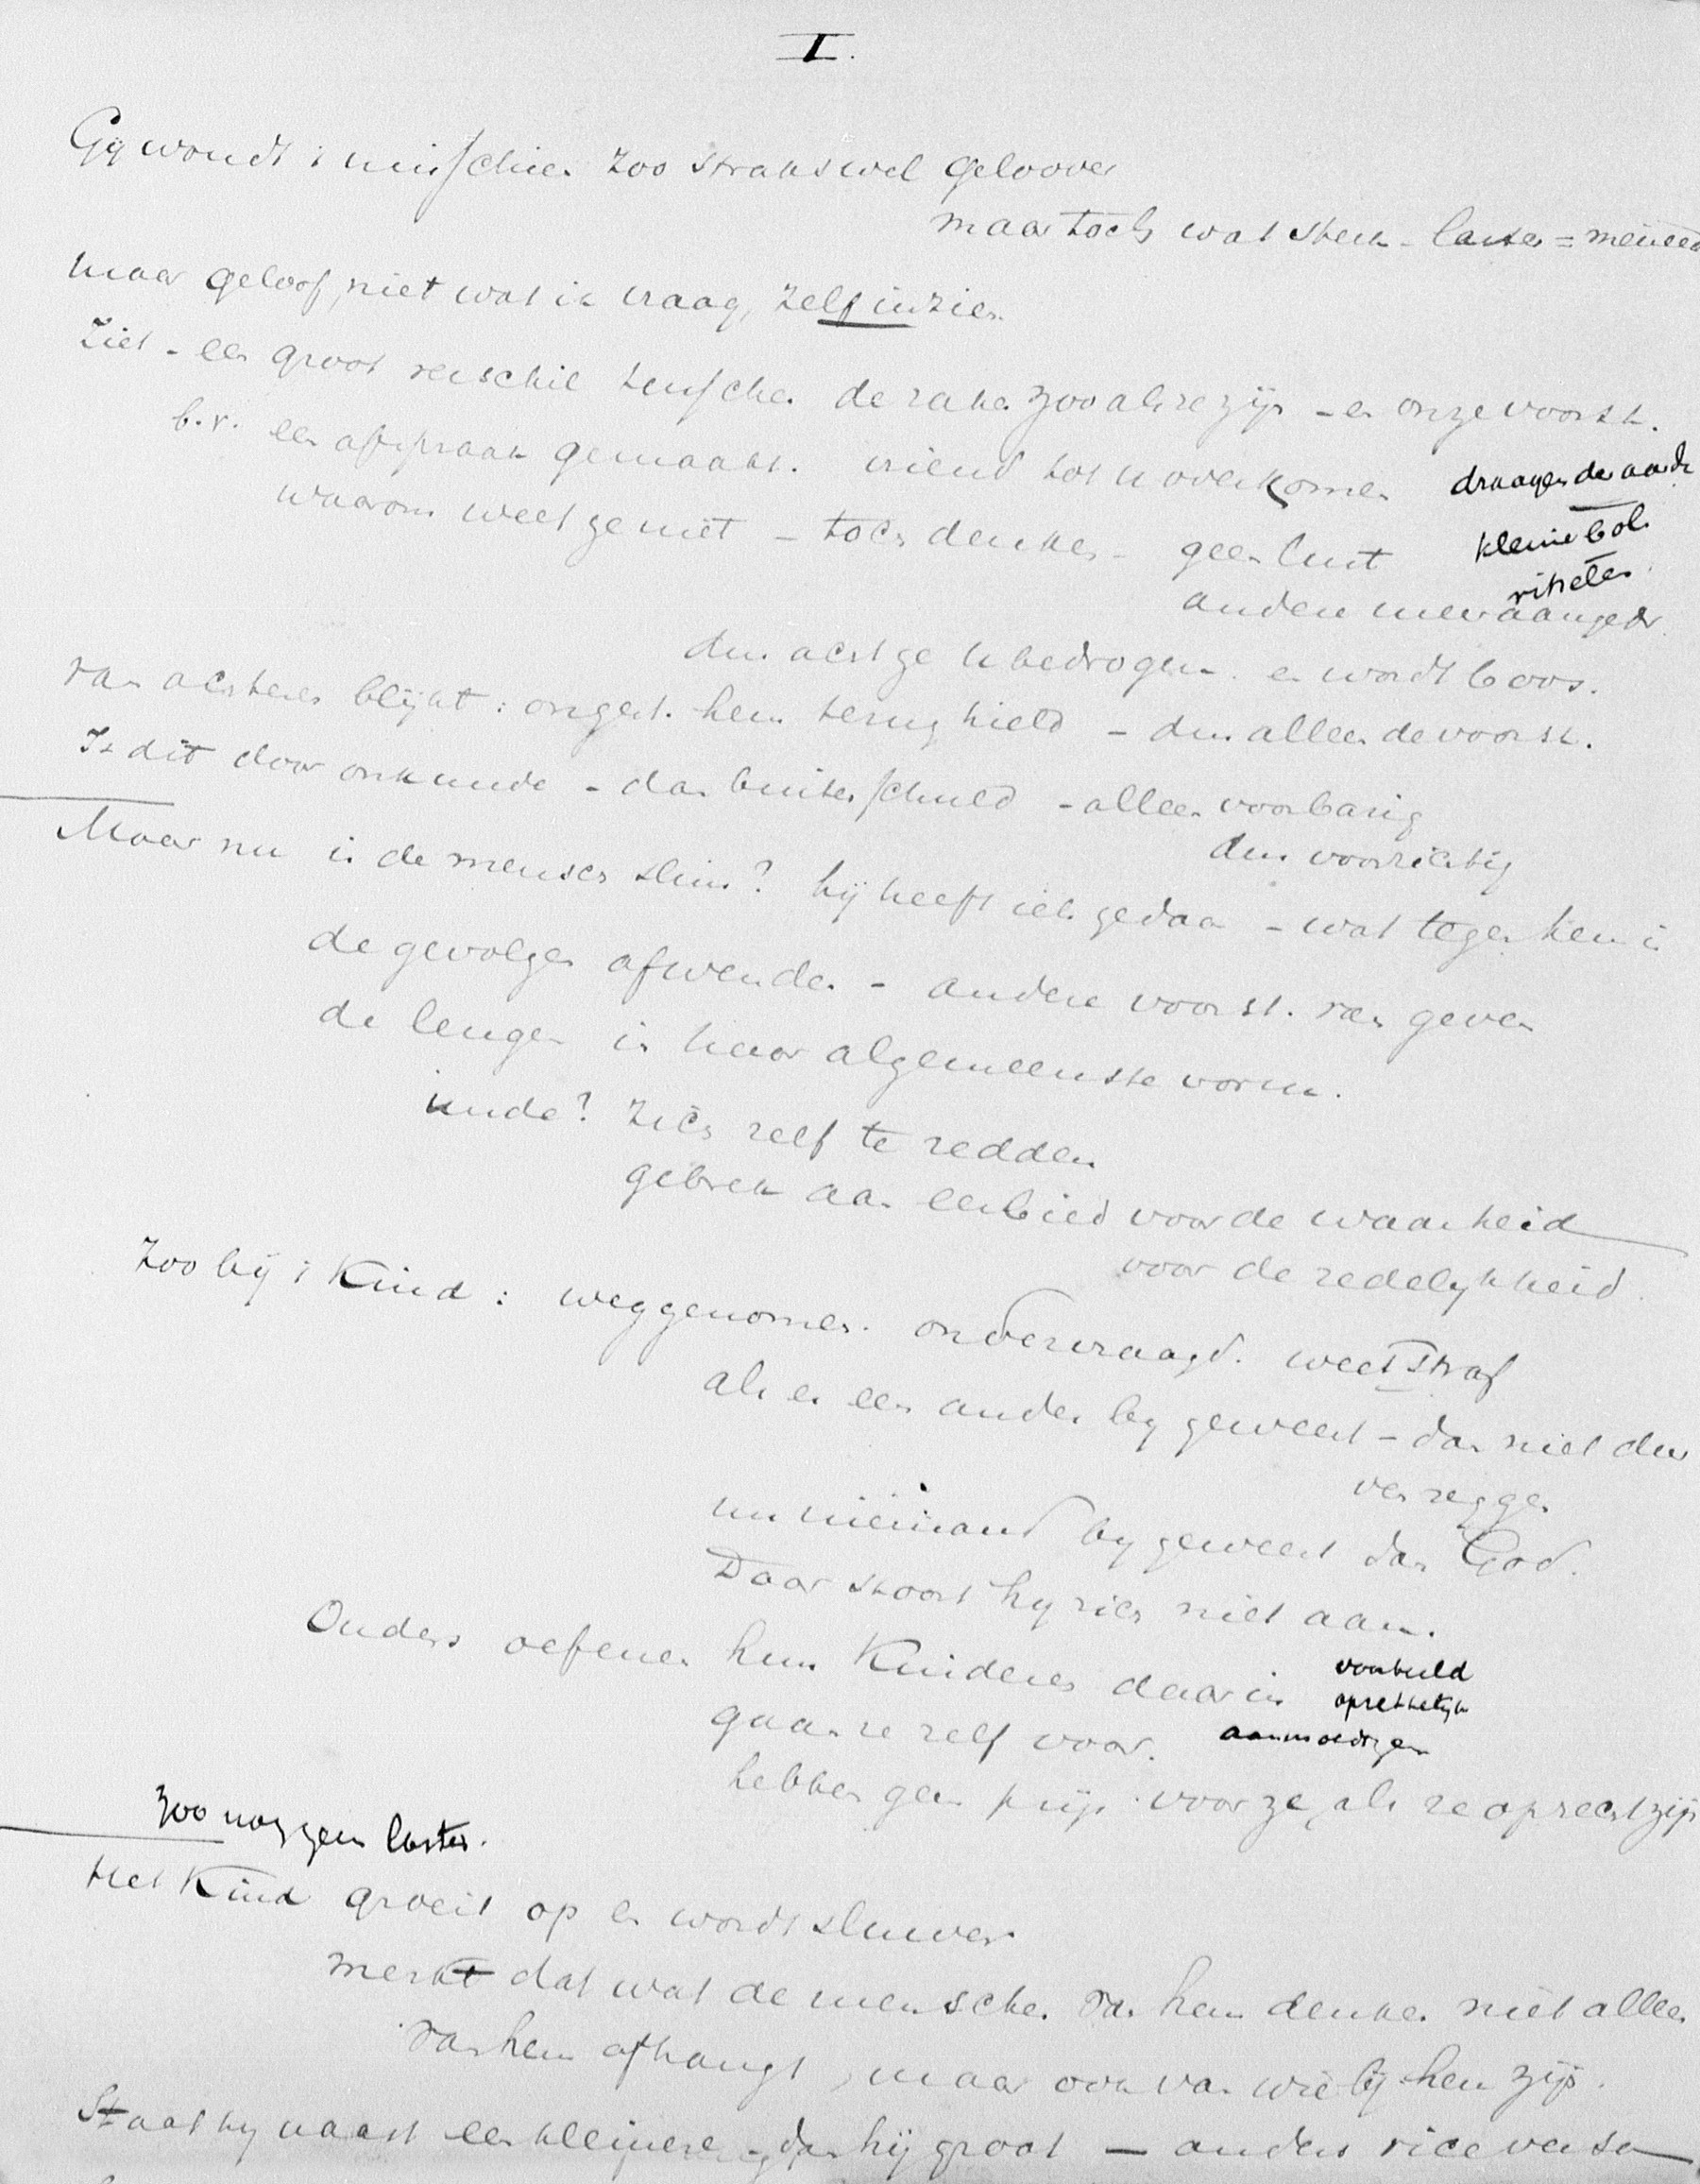 I.
Gy woudt 't misschien zoo straks wel gelooven
maar toch wat sterk - laster = meineed
maar geloof, niet wat ik vraag, zelf inzien
Ziet - een groot verschil tusschen de zaken zooals ze zijn - en onze voorst.
b.v. een afspraak gemaakt. vriend tot u overkomen
draagen de aarde
waarom weet ge niet - toch denken - geen lust
kleine bol
anderen meer aangedr.
dus acht ge u bedrogen en wordt boos.
van achteren blijkt: ongest. hem terug hield - dus alleen de voorst.
Is dit door onkunde - dan buiten schuld - alleen voorbarig
dus voorzichtig
Maar nu is de mensch slim? hij heeft iets gedaan - wat tegen hem is
de gevolgen afwenden - andere voorst. van geven
de leugen in haar algemeenste vorm.
einde? Zich zelf te redden
gebrek aan eerbied voor de waarheid
voor de redelykheid.
Zoo bij 't Kind: weggenomen. ondervraagd. weet straf
als er een ander by geweest - dan niet dur
ven zeggen
nu niemand by geweest dan God.
Daar stoort hy zich niet aan.
Ouders oefenen hun Kinderen daarin
voorbeeld
opzettelijk
gaan ze zelf voor.
aanmoedigen
hebben geen prijs voor ze, als ze oprecht zijn
Zoo nog geen laster.
Het Kind groeit op en wordt sluwer
merkt dat wat de menschen van hem denken niet alleen
van hem afhangt, maar ook van wie bij hem zijn.
Staat hy naast een kleinere - dan hij groot - anders vice versa